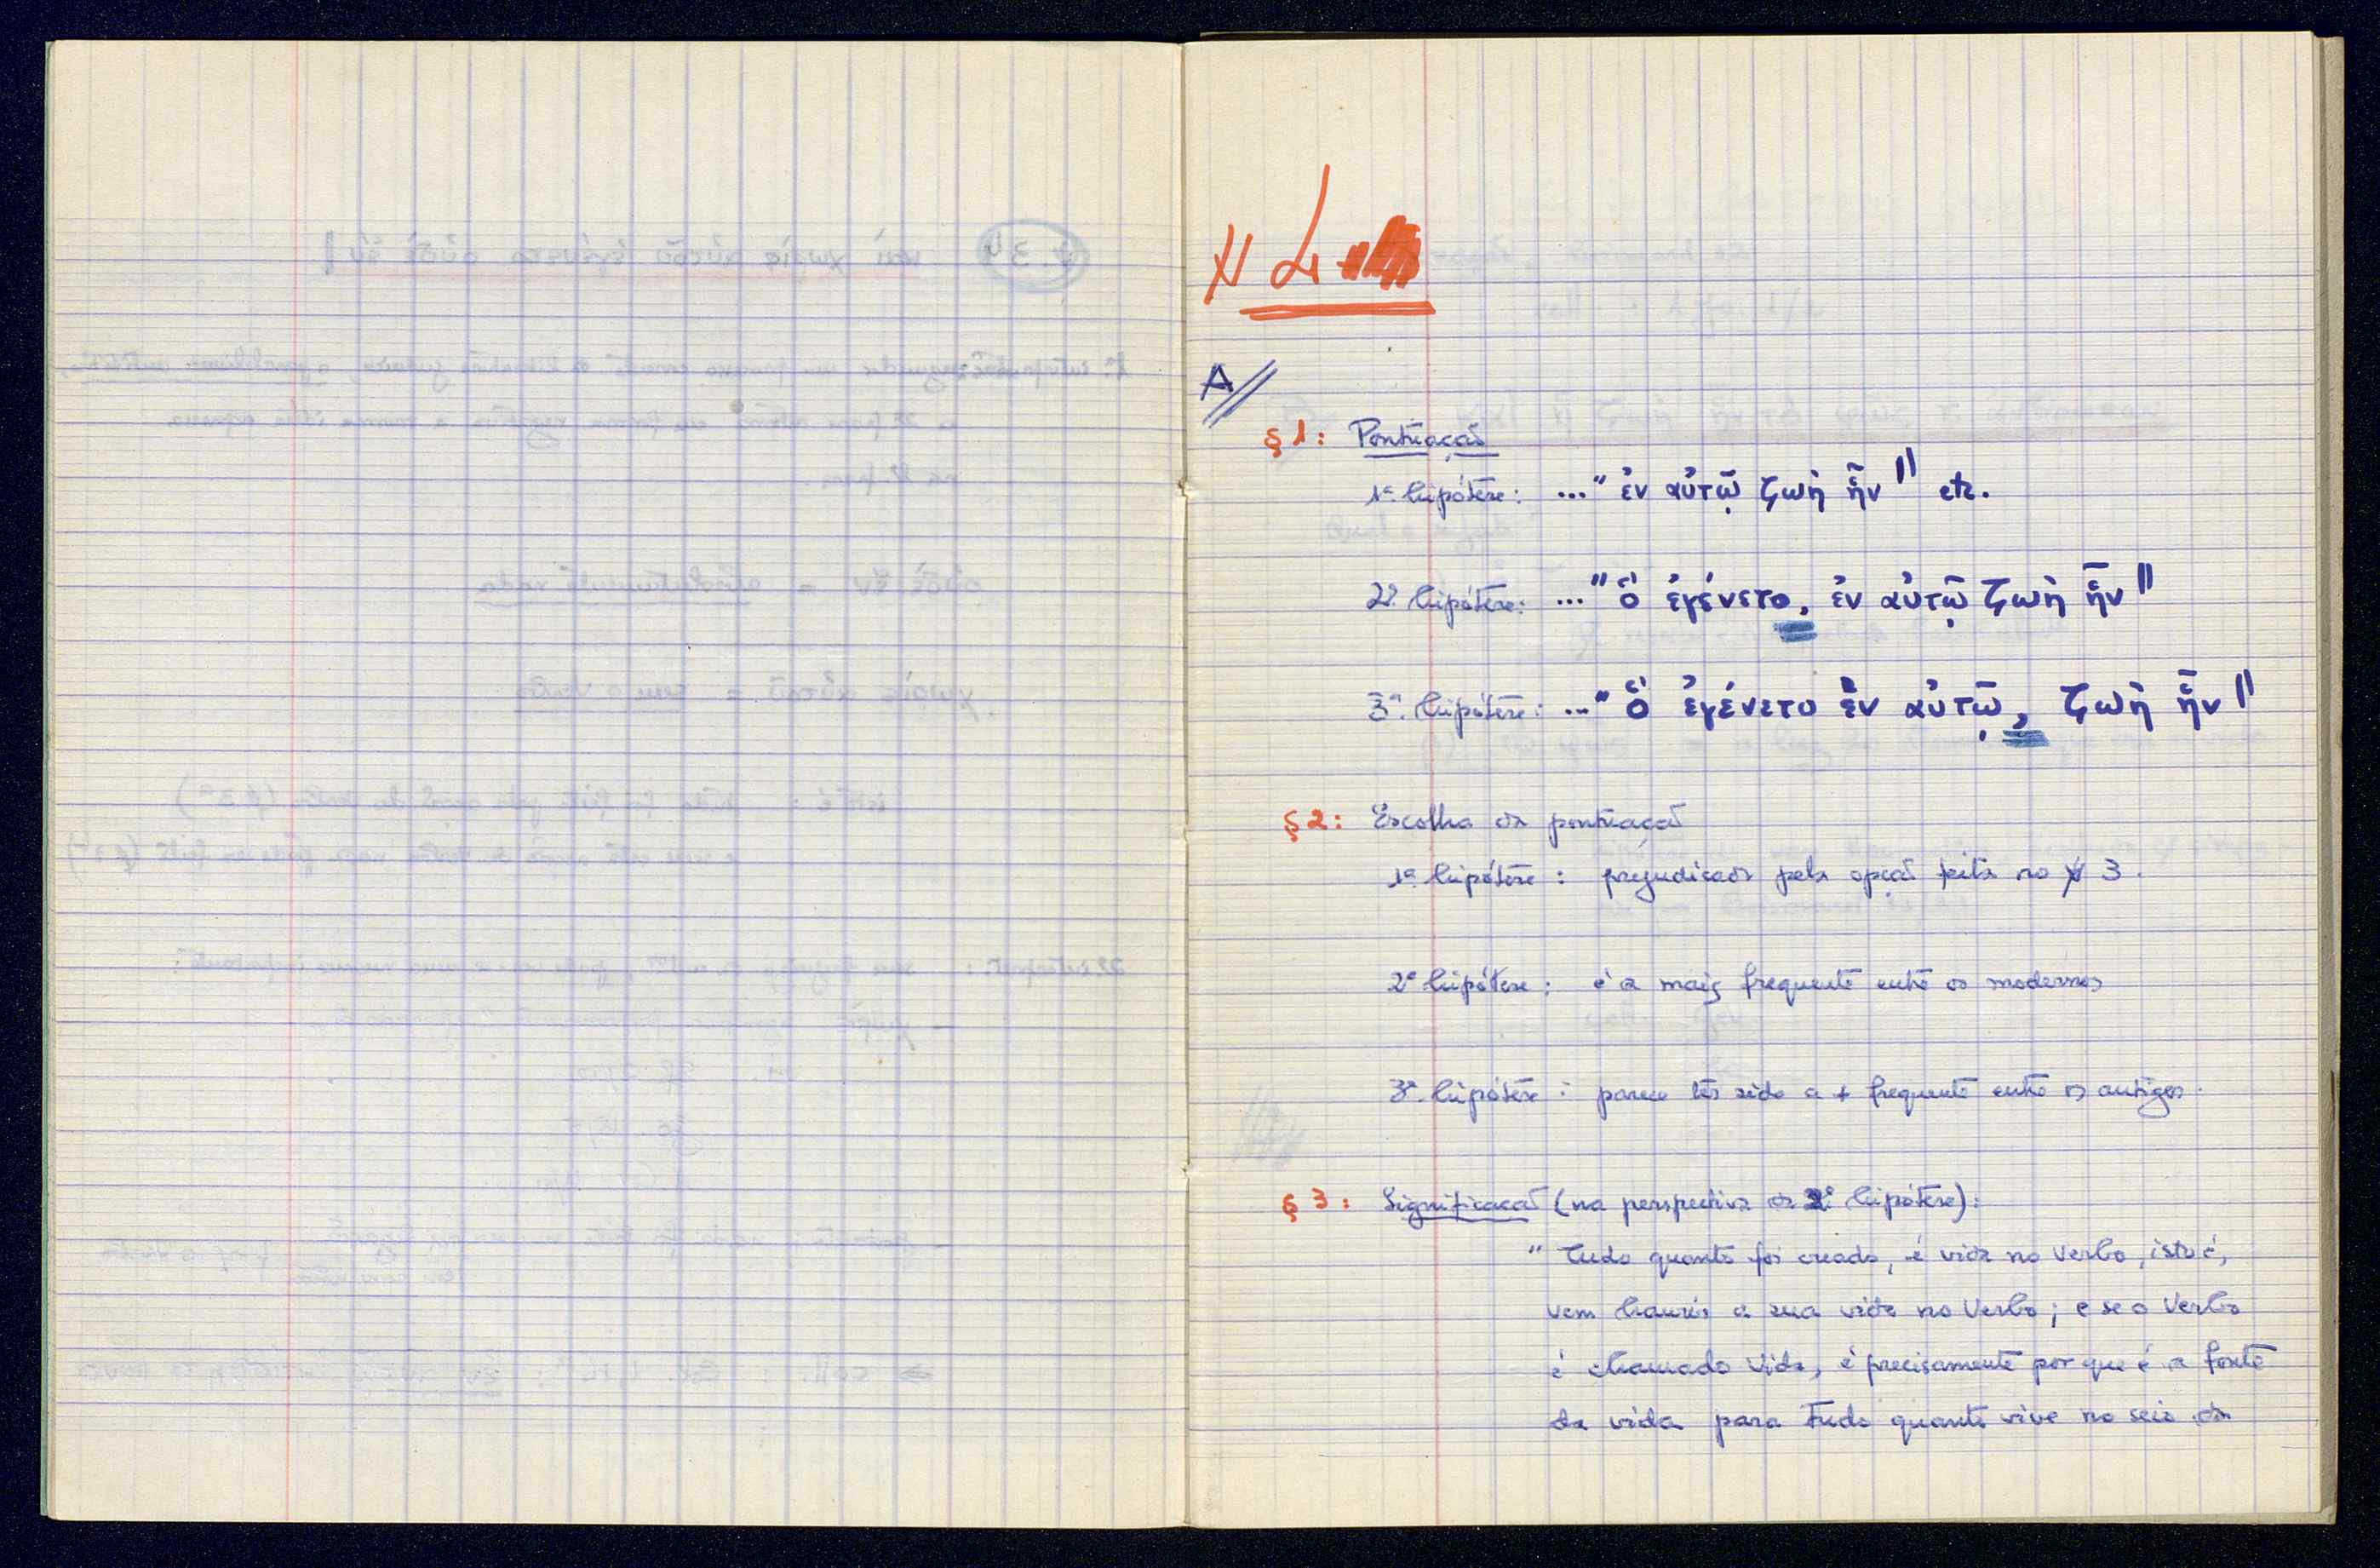 ℣ 4
A//
§ 1: Pontuação
1ª hipótese: ..." ἐν αὐτῷ ζωὴ ἦν" etc.
2ª hipótese: ..." ὃ ἐγένετο, ἐν αὐτῷ ζωὴ ἦν"
3ª hipótese: ..." ὃ ἐγένετο ἐν αὐτῷ, ζωὴ ἦν"
§ 2: Escolha da pontuação
1ª hipótese: prejudicada pela opção feita no ℣ 3.
2ª hipótese: é a mais frequente entre os modernos
3ª hipótese: parece ter sido a + frequente entre os antigos.
§ 3: Significação (na perspectiva da 2ª hipótese):
" Tudo quanto foi creado, é vida no Verbo, isto é,
vem haurir a sua vida no Verbo; e se o Verbo
é chamado Vida, é precisamente por que é a fonte
da vida para tudo quanto vive no seio da